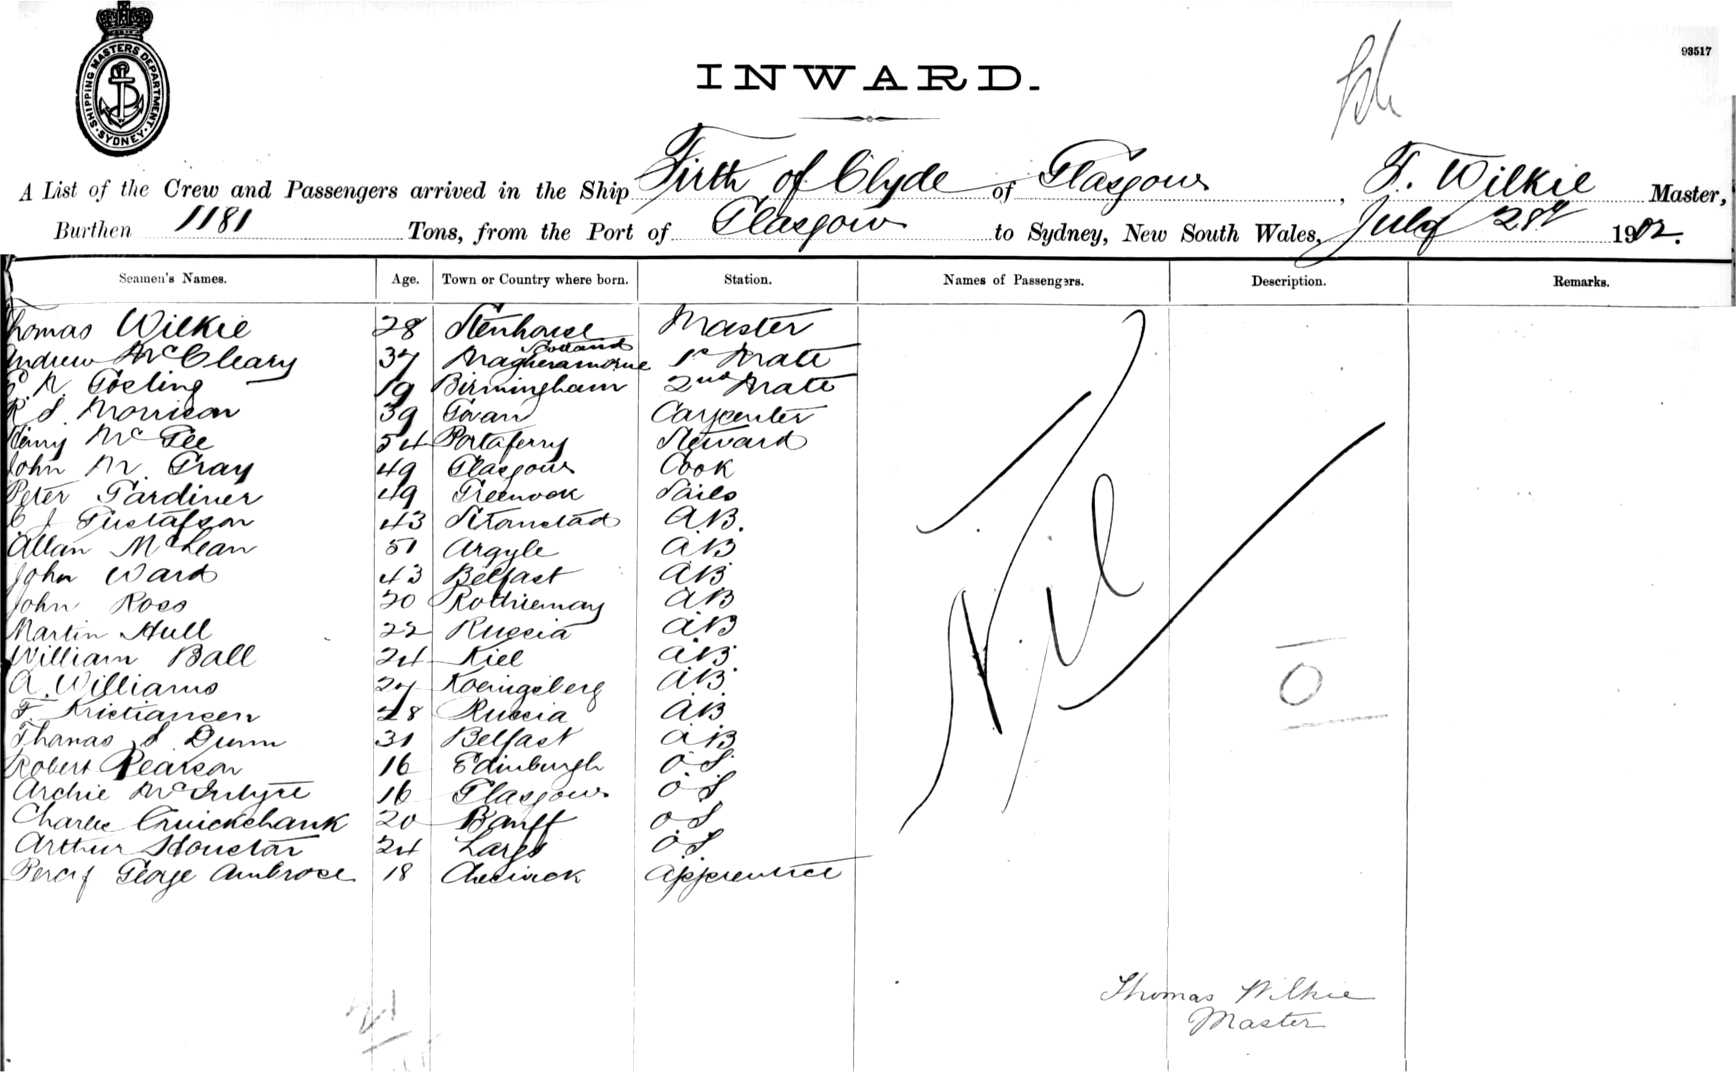 SHIPPING MASTERS DEPARTMENT
SYDNEY
93517
INWARD.
A List of the Crew and Passengers arrived in the Ship Firth of Clyde of Glasgow, T. Wilkie Master,
Burthen 1181 Tons, from the Port of Glasgow to Sydney, New South Wales, July 28th 1902.
Seamen's Names. Age. Town or Country where born. Station. Names of Passengers. Description. Remarks.
Thomas Wilkie 28 Stenhouse Master
Scotland
Andrew McCleary 37 Magheramorne 1st Mate
Gosling 19 Birmingham 2nd Mate
R. S Morrison 39 Govan Carpenter
Henry McGee 54 Portaferry Steward
John M. Gray 49 Glasgow Cook
Peter Gardiner 49 Greenock Sails
C J Gustafson 43 Stromstad A.B.
Allan McLean 51 Argyle A.B
John Ward 43 Belfast A.B
John Ross 20 Rothiemay A.B
Martin Hull 22 Russia A.B
William Ball 24 Kiel A.B
A. Williams 27 Koeingsberg A.B
F. Kristiansen 28 Russia A.B
Thomas S Dunn 31 Belfast A.B
Robert Pearson 16 Edinburgh O.S.
Archie McIntyre 16 Glasgow O.S
Charles Cruickshank 20 Banff O.S
Arthur Houston 24 Largs O.S
Percy George Ambrose 18 Apprentice
Nil
O
Thomas Wilkie
Master
21